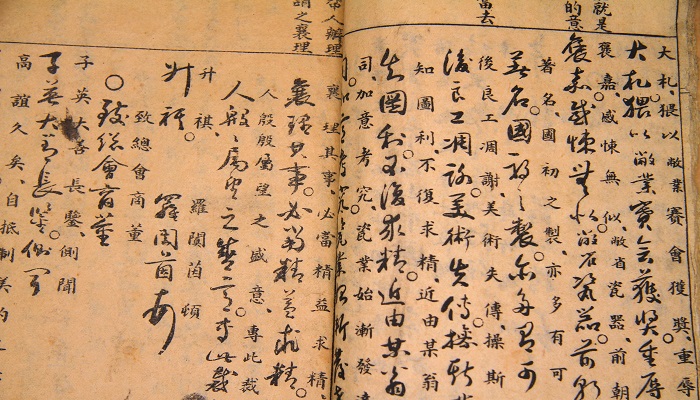 就是
的意
當去
大札、猥以敝業賽會獲獎、重辱
大札猥以敝業賽會獲獎重辱
褒嘉、感悚無似、敝省瓷器、前朝
褒嘉感悚無似敝省瓷器前朝
著名、國初之製、亦多有可
著名國初之製亦多有可
後良工凋謝、美術失傳、操斯
後良工凋謝美術失傳操斯
知圖利、不復求精、近由某翁
知圖利不復求精近由某翁
司、加意考究、瓷業始漸發達
辦理
謂之襄理
襄理其事、必當精益求精
襄理其事必當精益求精
人殷殷屬望之盛意、專此裁
人殷殷屬望之盛意專此裁
升祺、 羅闓茵頓
升祺 羅闓茵頓
致總會商董
致總會商董
子英大善長鑒側聞
子英大善長鑒側聞
高誼久矣、自抵制美約